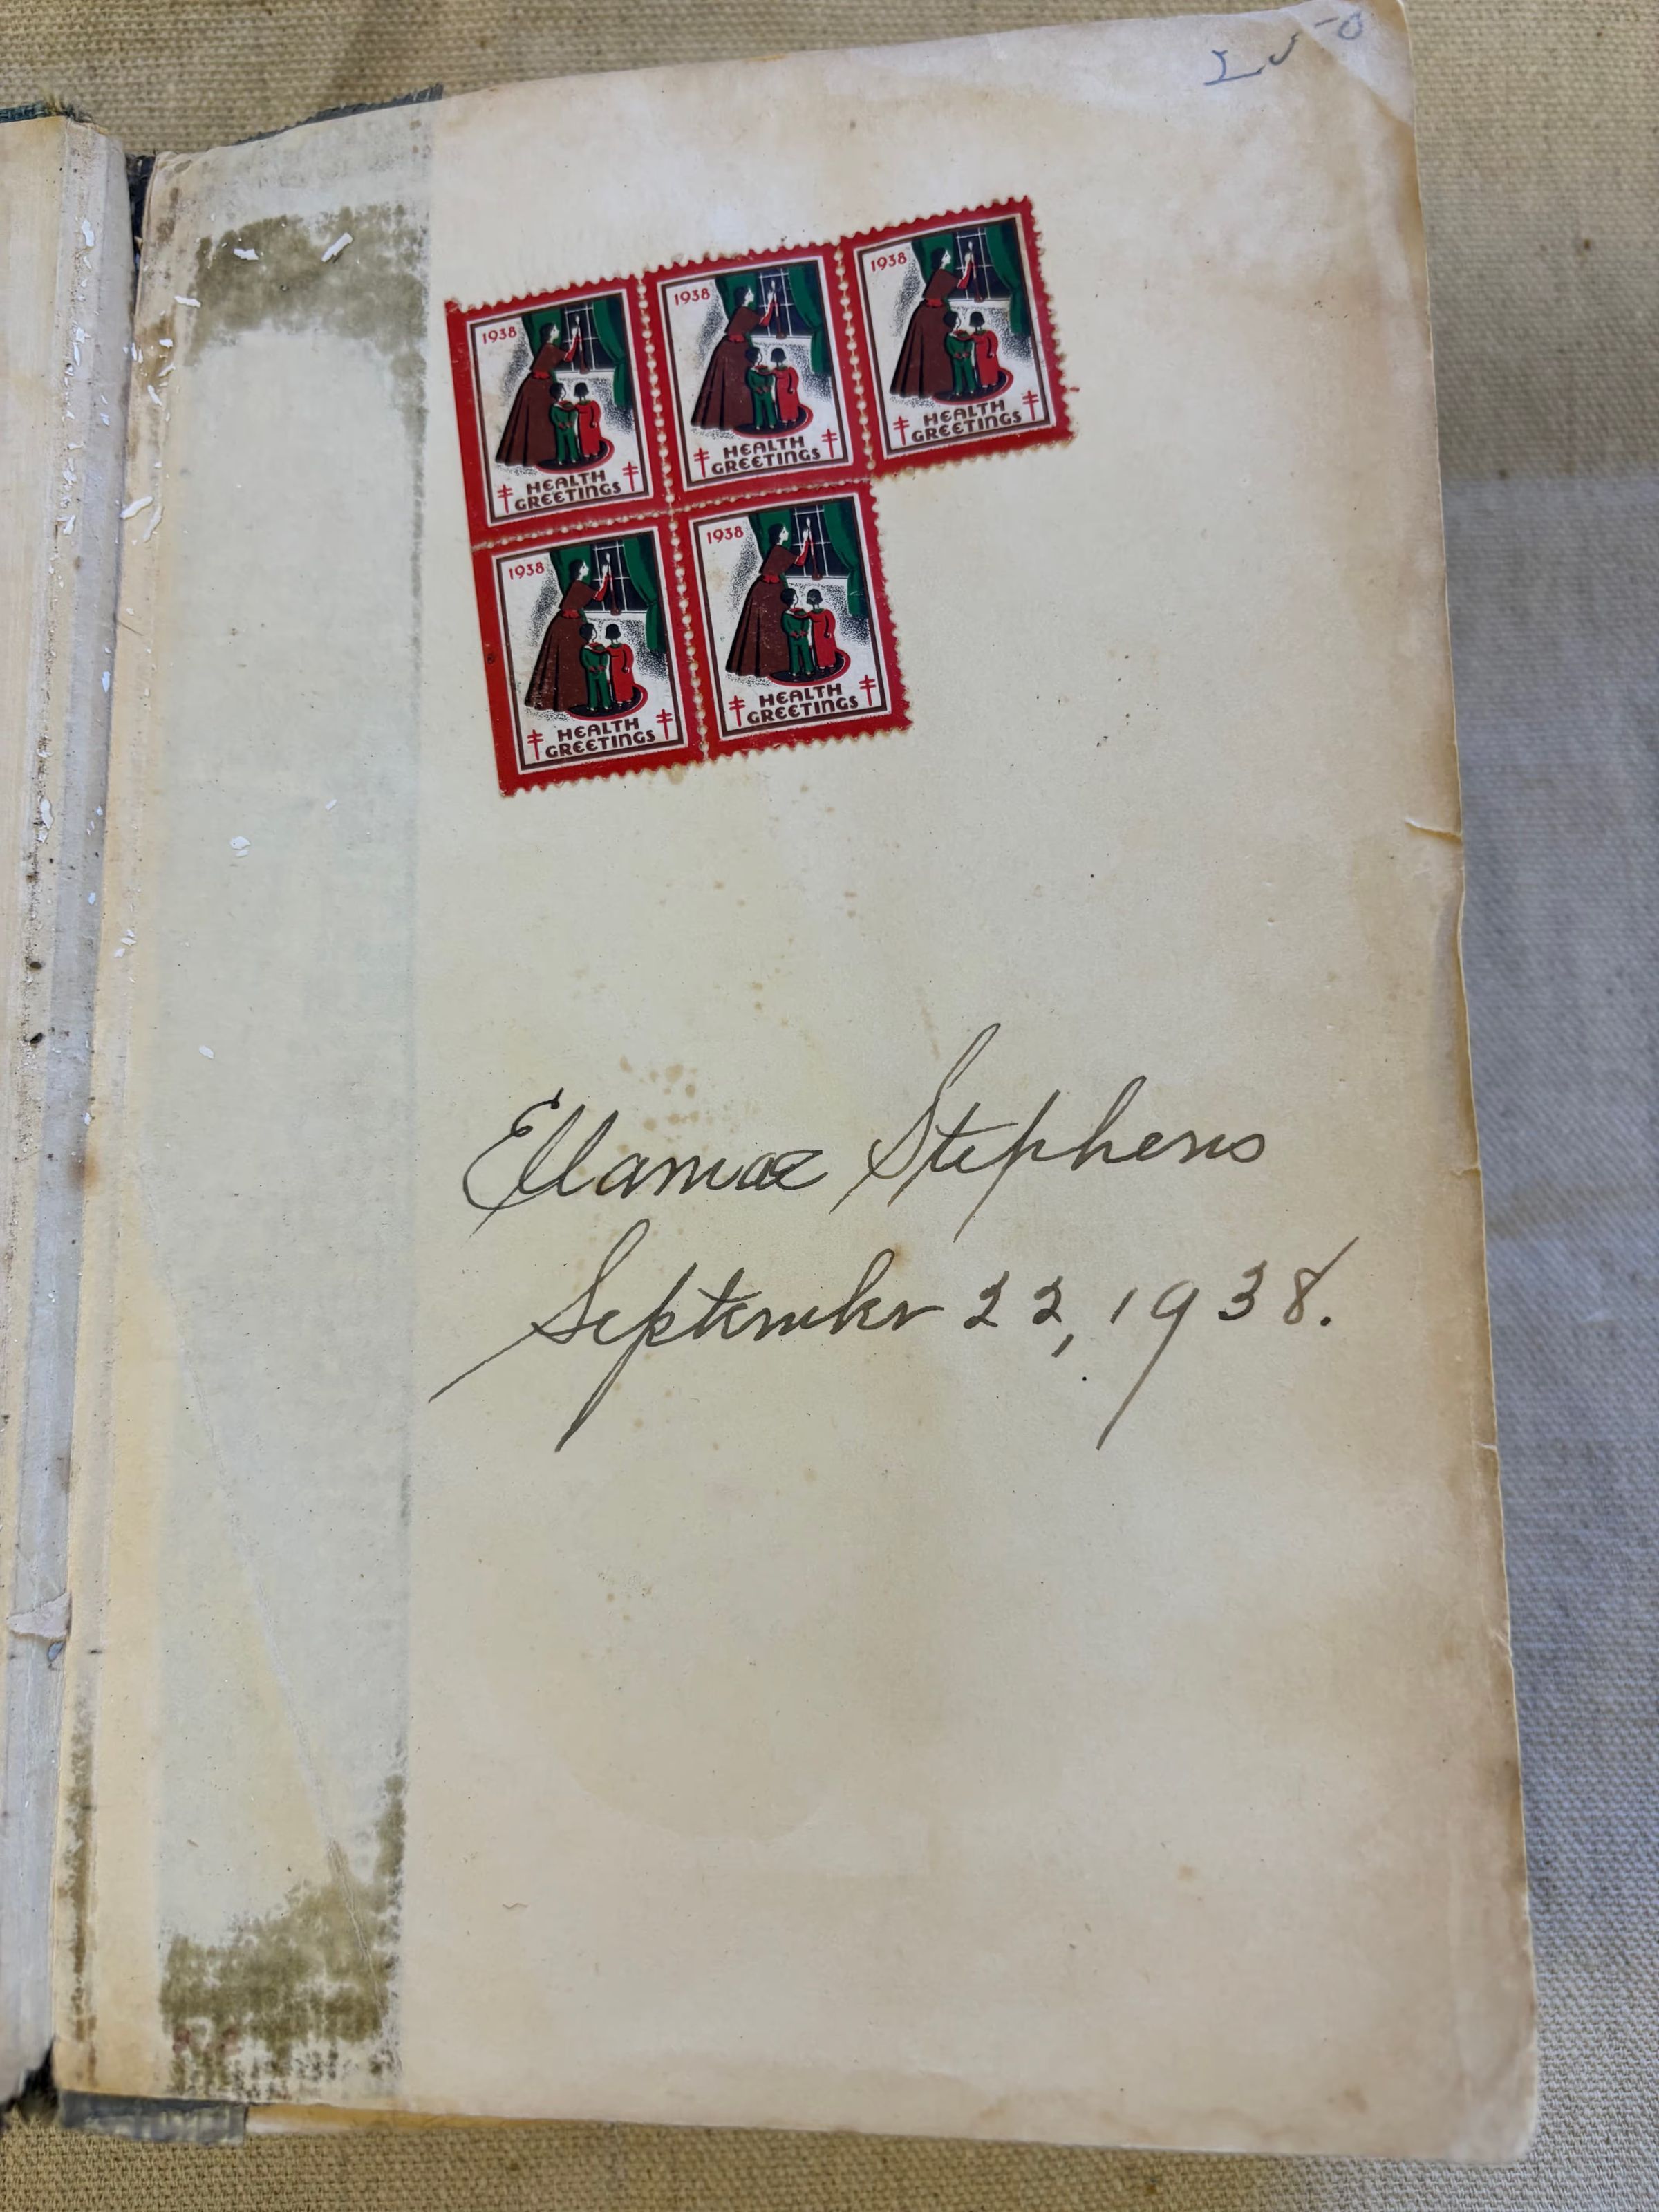 1938
HEALTH
GREETINGS
1938
HEALTH
GREETINGS
1938
HEALTH
GREETINGS
1938
HEALTH
GREETINGS
1938
HEALTH
GREETINGS
Ellamae Stephens
September 22, 1938.